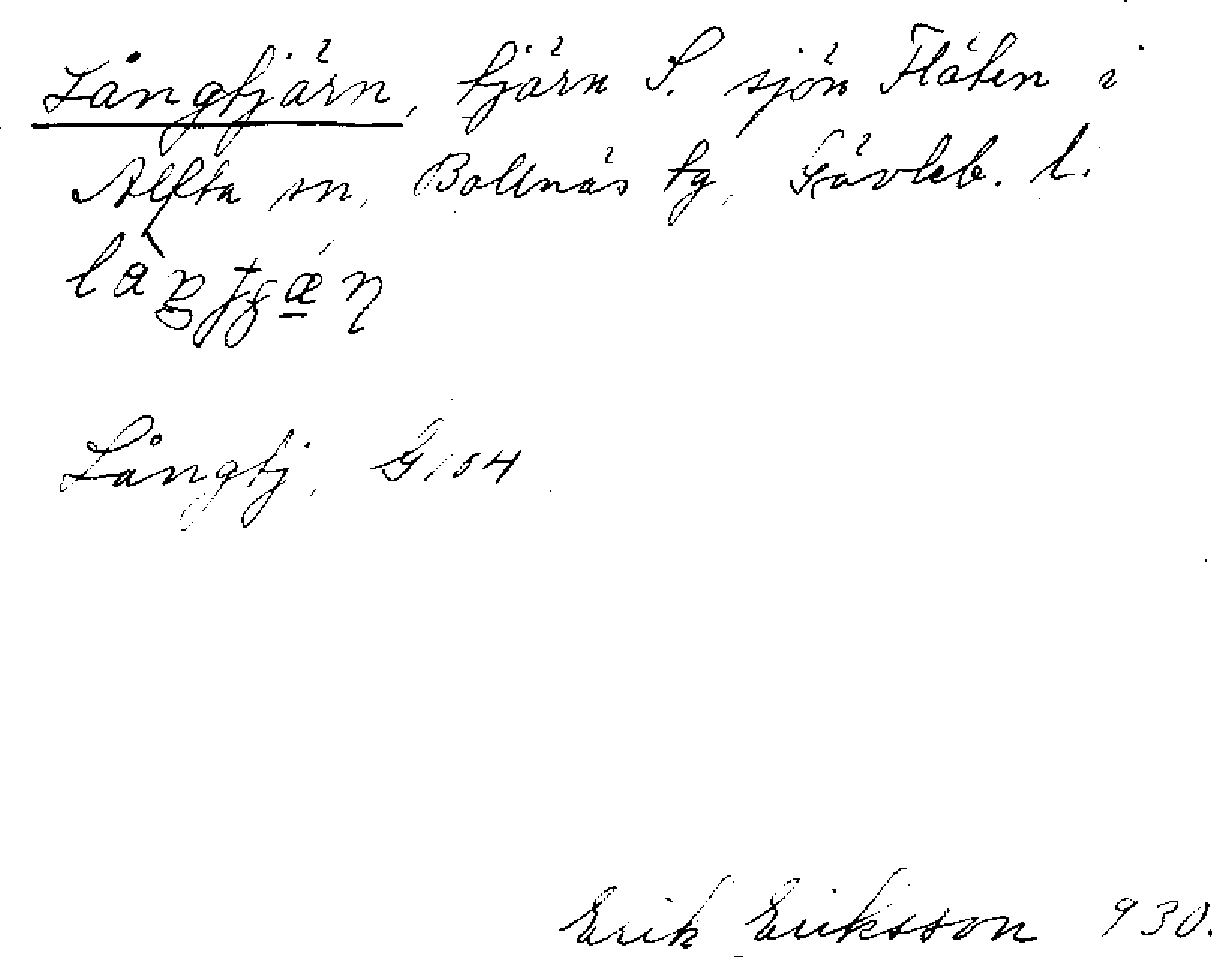 Långtjärn, tjärn S. sjön Flåten i
Alfta sn, Bollnäs tg, Gävleb. l.
Långtj. G104
Erik Eriksson 930.